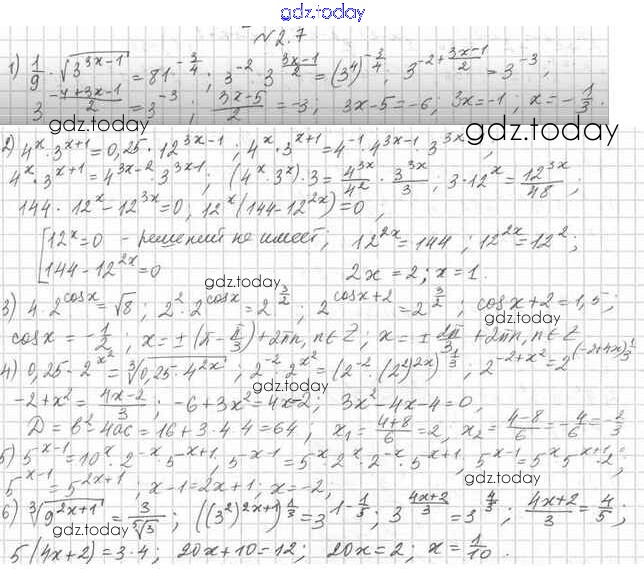 gdz.today
№2.7
1) 1/9 · √(3^(3x-1)) = 81^(-3/4); 3^(-2) · 3^((3x-1)/2) = (3^4)^(-3/4), 3^(-2+(3x-1)/2) = 3^(-3);
3^((-4+3x-1)/2) = 3^(-3); (3x-5)/2 = -3; 3x-5=-6; 3x=-1; x=-1/3.
gdz.today gdz.today
2) 4^x · 3^(x+1) = 0,25 · 12^(3x-1); 4^x · 3^(x+1) = 4^(-1) · 4^(3x-1) · 3^(3x-1);
4^x · 3^(x+1) = 4^(3x-2) · 3^(3x-1); (4^x · 3^x) · 3 = 4^(3x)/4^2 · 3^(3x)/3; 3·12^x = 12^(3x)/48;
144 · 12^x - 12^(3x) = 0, 12^x(144-12^(2x)) = 0;
[12^x = 0 - решений не имеет; 12^(2x) = 144; 12^(2x) = 12^2;
[144 - 12^(2x) = 0 2x = 2; x = 1.
gdz.today
3) 4 · 2^(cosx) = √8; 2^2 · 2^(cosx) = 2^(3/2); 2^(cosx+2) = 2^(3/2); cosx+2 = 1,5;
gdz.today
cosx = -1/2; x = ±(π - π/3) + 2πn, n∈Z; x = ± 2π/3 + 2πn, n∈Z
4) 0,25 · 2^(x^2) = ∛(0,25 · 4^(2x)); 2^(-2) · 2^(x^2) = (2^(-2) · (2^2)^(2x))^(1/3); 2^(-2+x^2) = 2^((-2+4x)1/3)
gdz.today
-2+x^2 = (4x-2)/3; -6+3x^2 = 4x-2; 3x^2-4x-4=0,
D = b^2-4ac = 16+3·4·4 = 64; x₁ = (4+8)/6 = 2, x₂ = (4-8)/6 = -4/6 = -2/3
5) 5^(x-1) = 10^x · 2^(-x) · 5^(x+1), 5^(x-1) = 5^x · 2^x · 2^(-x) · 5^(x+1), 5^(x-1) = 5^x 5^(x+1) · 2^0;
gdz.today gdz.today
5^(x-1) = 5^(2x+1); x-1 = 2x+1; x = -2,
6) ∛(9^(2x+1)) = 3/⁵√3; ((3^2)^(2x+1))^(1/3) = 3^(1-1/5); 3^((4x+2)/3) = 3^(4/5); (4x+2)/3 = 4/5;
5(4x+2) = 3·4; 20x+10 = 12; 20x = 2; x = 1/10.
gdz.today